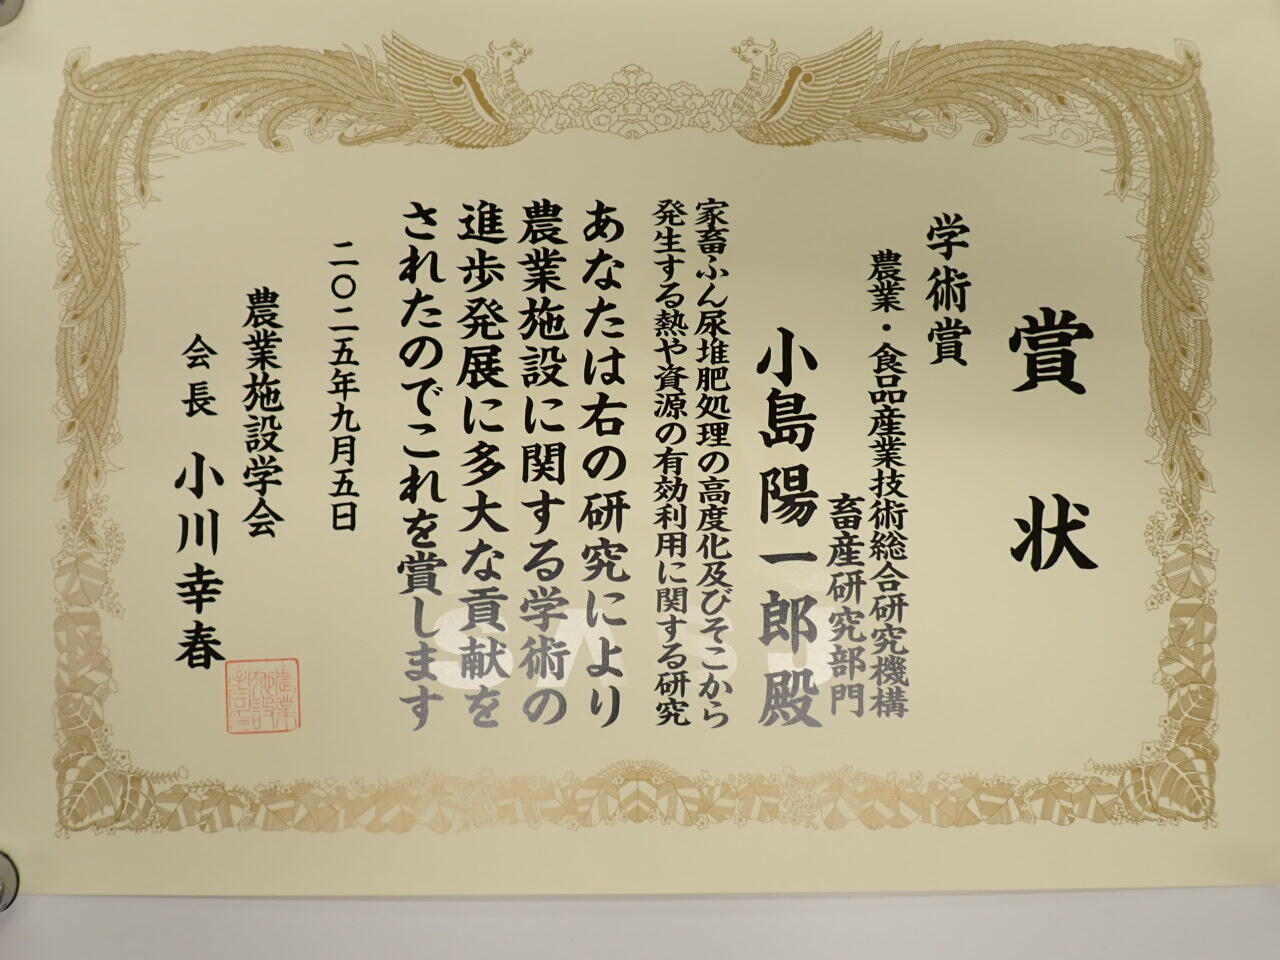 賞状
学術賞
農業・食品産業技術総合研究機構
畜産研究部門
小島陽一郎殿
家畜ふん尿堆肥処理の高度化及びそこから
発生する熱や資源の有効利用に関する研究
あなたは右の研究により
農業施設に関する学術の
進歩発展に多大な貢献を
されたのでこれを賞します
二〇二五年九月五日
農業施設学会
会長 小川幸春
農業
施設
学会